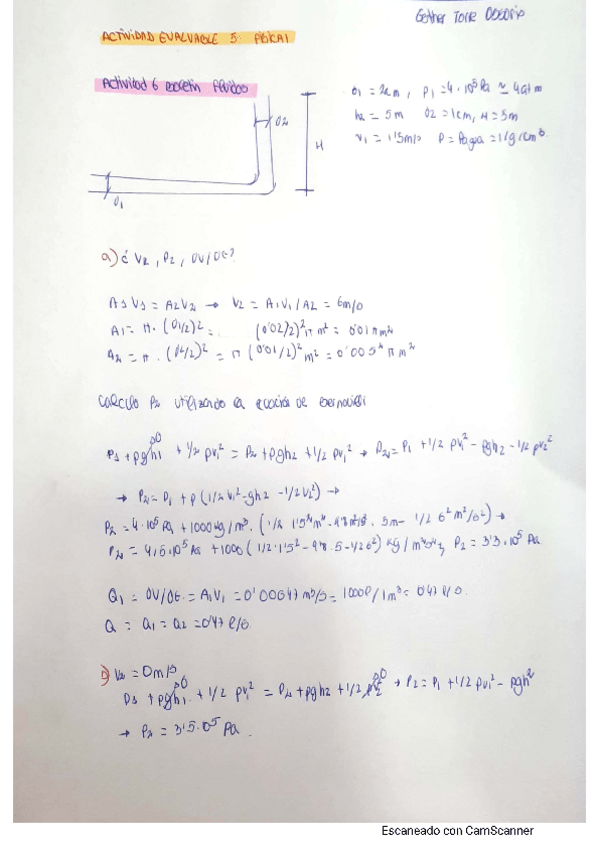 ACTIVIDAD EVALUABLE 5: FÍSICA I
Actividad 6 boletín fluidos
D1 = 2cm, P1 = 4·10⁵ Pa ≈ 4 atm
h2 = 5m D2 = 1cm, H = 5m
v1 = 1'5m/s ρ = ρagua = 1g/cm³
D2
H
D1
a) ¿ V2, P2, DV/Dt?
A1 V1 = A2 V2 → V2 = A1V1/A2 = 6m/s
A1 = π · (D1/2)² = (0'02/2)² π m² = 0'01² π m²
A2 = π · (D2/2)² = π (0'01/2)² m² = 0'005² π m²
Calculo P2 utilizando la ecuación de Bernouilli
P1 + ρgh1 + 1/2 ρv1² = P2 + ρgh2 + 1/2 ρv2² → P2 = P1 + 1/2 ρv1² - ρgh2 - 1/2 ρv2²
0
→ P2 = P1 + ρ (1/2 v1² - gh2 - 1/2 v2²) →
P2 = 4·10⁵ Pa + 1000 kg/m³ · (1/2 1'5² m²/s² - 9'8 m/s² · 5m - 1/2 6² m²/s²) →
Q1 = DV/Dt = A1V1 = 0'00047 m³/s = 1000 l/1m³ = 0'47 l/s.
Q = Q1 = Q2 = 0'47 l/s
V2 = 0m/s
P1 + ρgh1 + 1/2 ρv1² = P2 + ρgh2 + 1/2 ρv2² → P2 = P1 + 1/2 ρv1² - ρgh2
0
0
→ P2 = 3'5·10⁵ Pa.
Escaneado con CamScanner